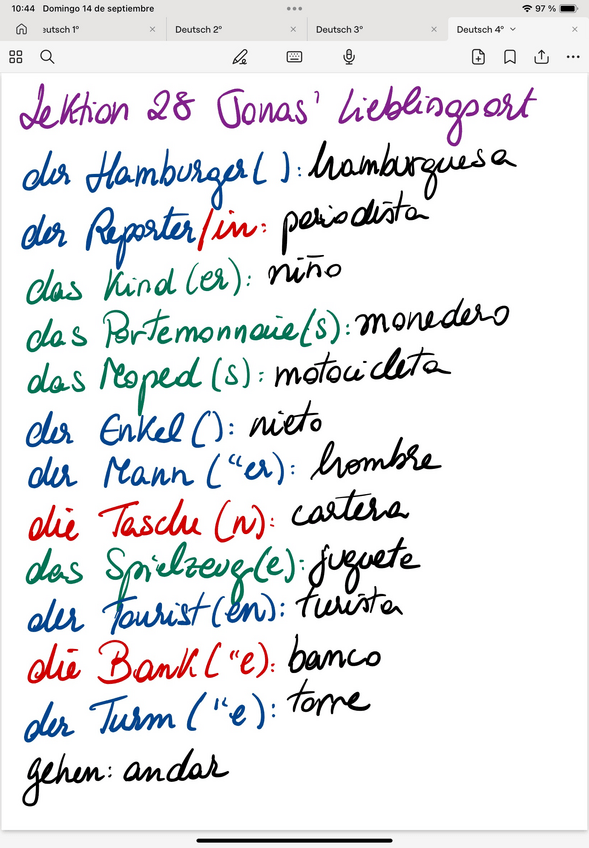 10:44 Domingo 14 de septiembre 97 %
eutsch 1° Deutsch 2° Deutsch 3° Deutsch 4°
Lektion 28 Jonas' Lieblingsort
der Hamburger( ): hamburguesa
der Reporter/in: periodista
das Kind (er): niño
das Portemonnaie(s): monedero
das Moped (s): motocicleta
der Enkel (): nieto
der Mann ("er): hombre
die Tasche (n): cartera
das Spielzeug(e): juguete
der Tourist (en): turista
die Bank ("e): banco
der Turm ("e): torre
gehen: andar